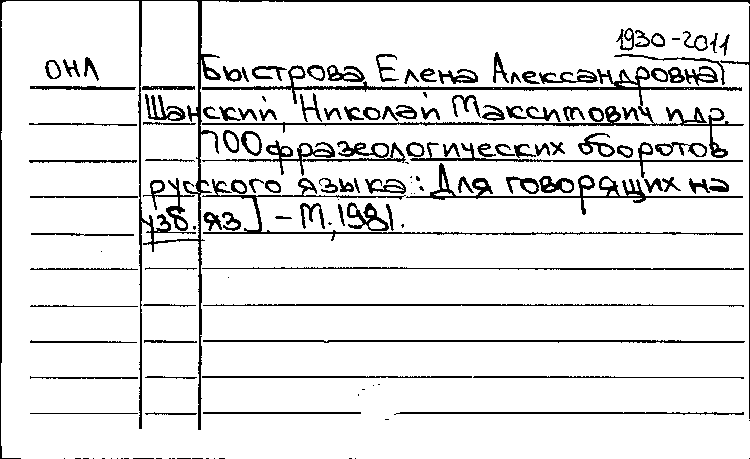 1930-2011
ОНЛ Быстрова, Елена Александровна,
Шанский, Николай Максимович и др.
700 фразеологических оборотов
русского языка: [Для говорящих на
узб. яз.]. - М., 1981.